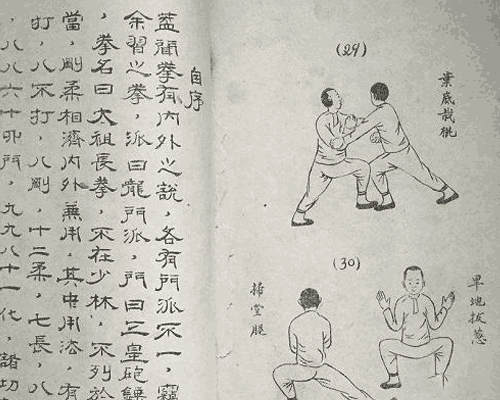 (29)
葉底桃
(30)
旱地拔葱
掃堂腿
自序
蓋聞拳有內外之說，各有門派不一，竊
余習之拳，派曰龍門派，門曰三皇砲
，拳名曰太祖長拳，不在少林，不列於
當，剛柔相濟內外兼用，其中用法，有
打，八不打，八剛，十二柔，七長，八
，八八六十卯門，九九八十一化，諸切